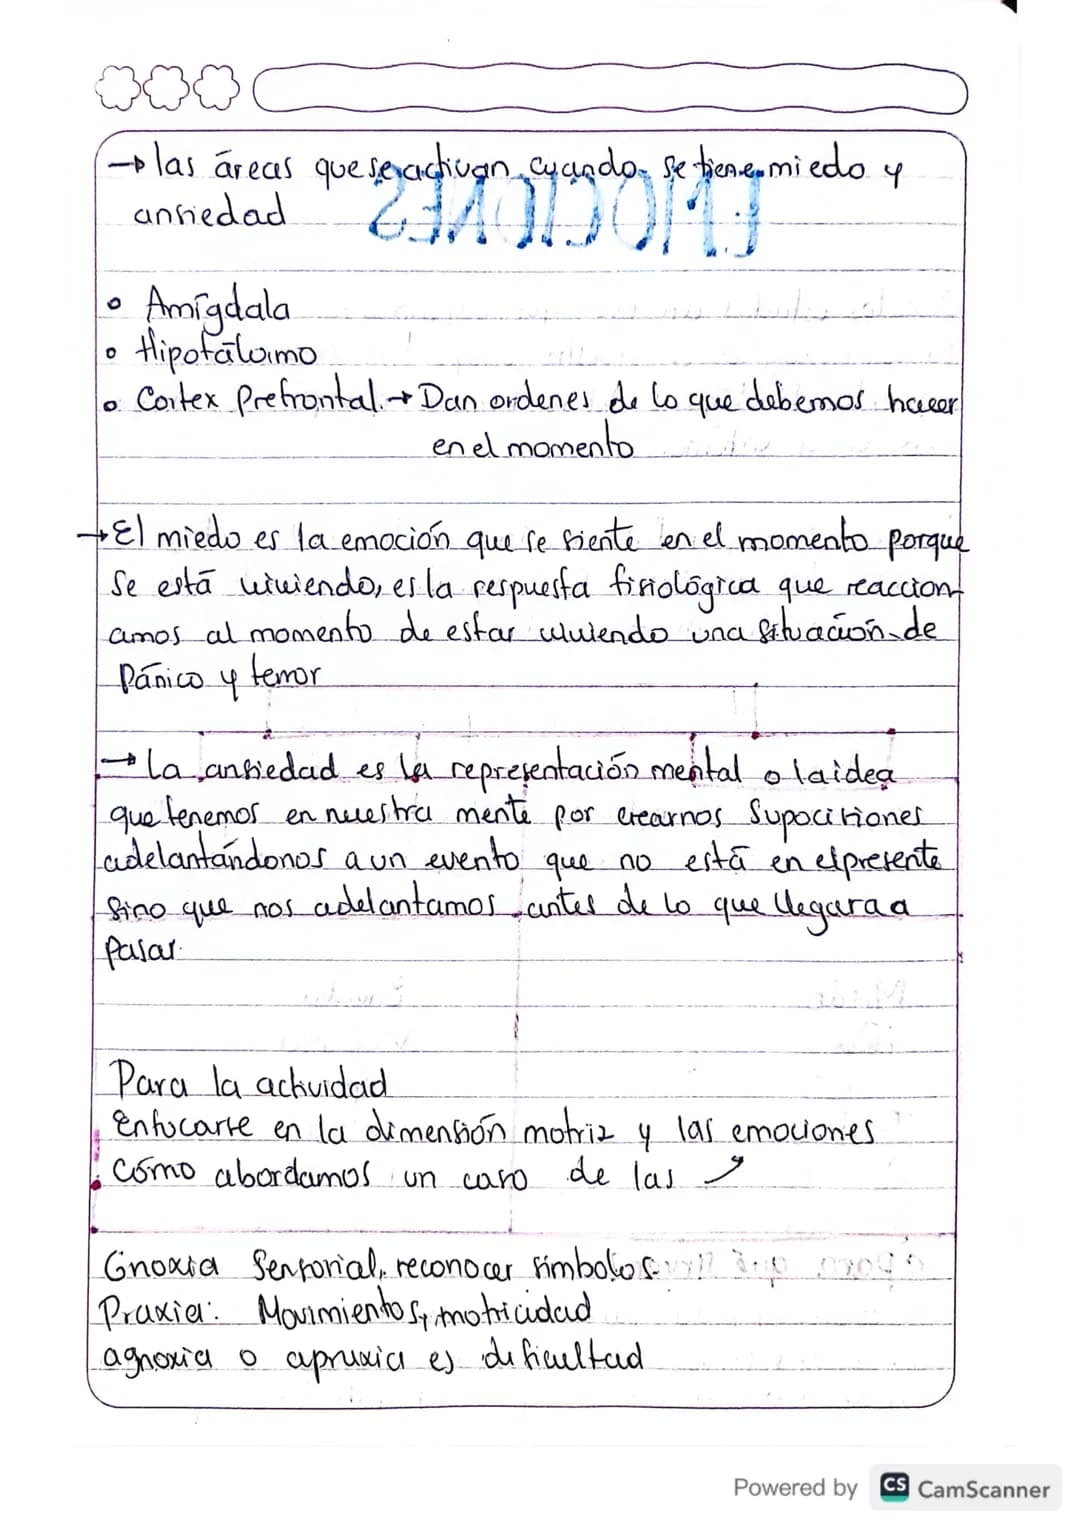 → las áreas que se activan cuando se tiene miedo y
ansiedad
EMOCIONES
• Amígdala
• Hipotálamo
• Cortex Prefrontal → Dan ordenes de lo que debemos hacer
en el momento
→ El miedo es la emoción que se siente en el momento porque
se está viviendo, es la respuesta fisiológica que reaccion
amos al momento de estar viviendo una situación de
Pánico y terror
→ La ansiedad es la representación mental o la idea
que tenemos en nuestra mente por crearnos Suposiciones
adelantándonos a un evento que no está en el presente
Sino que nos adelantamos antes de lo que llegara a
Pasar.
Para la actividad
Enfocarte en la dimensión motriz y las emociones
Cómo abordamos un caso de las
Gnoxia Sensorial, reconocer símbolos
Praxia: Movimientos, motricidad
agnoxia o apraxia es dificultad
Powered by CS CamScanner